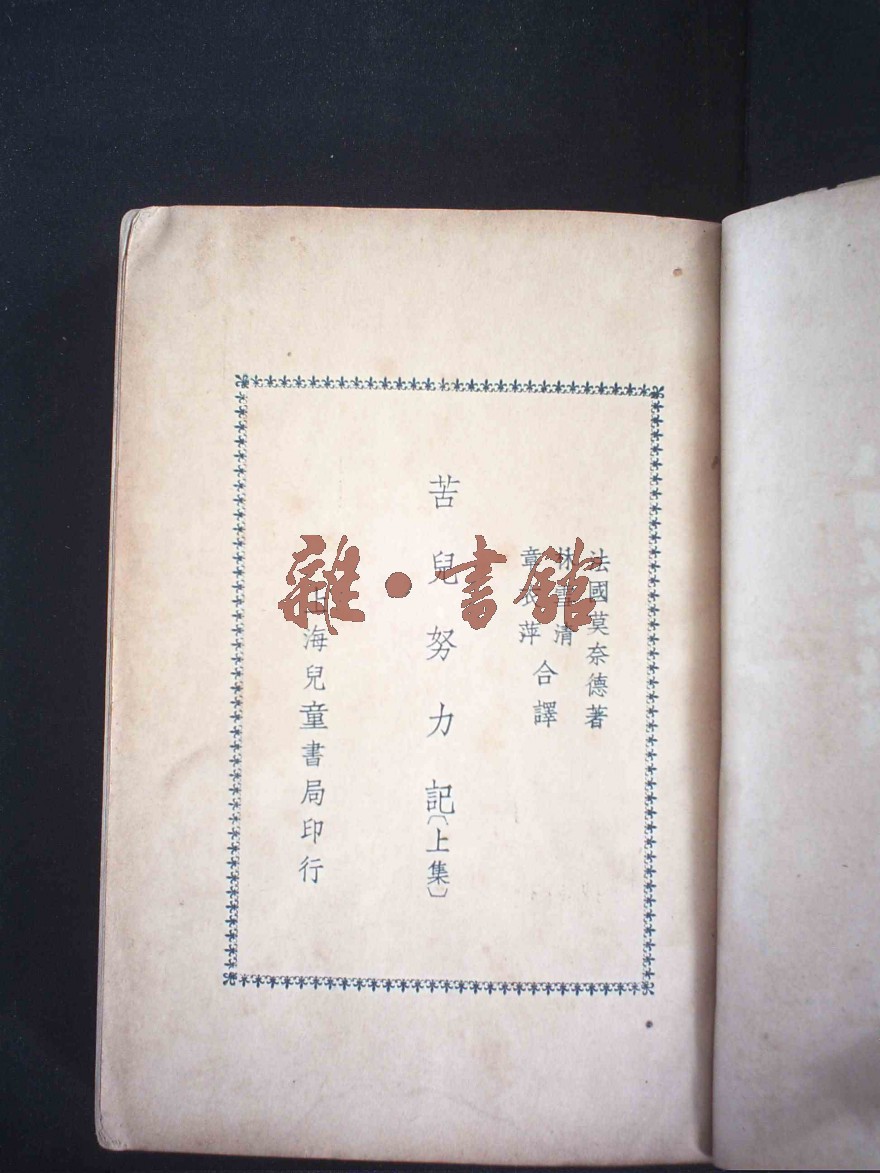 法國莫奈德著
林雪清
章衣萍
合譯
苦兒努力記〔上集〕
上海兒童書局印行
雜·書館